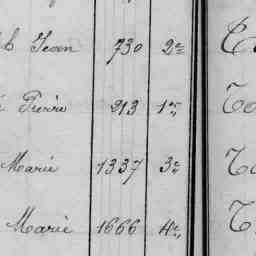 Jean 730 2e
Pierre 213 1er
Marie 1337 3e
Marie 1666 4e